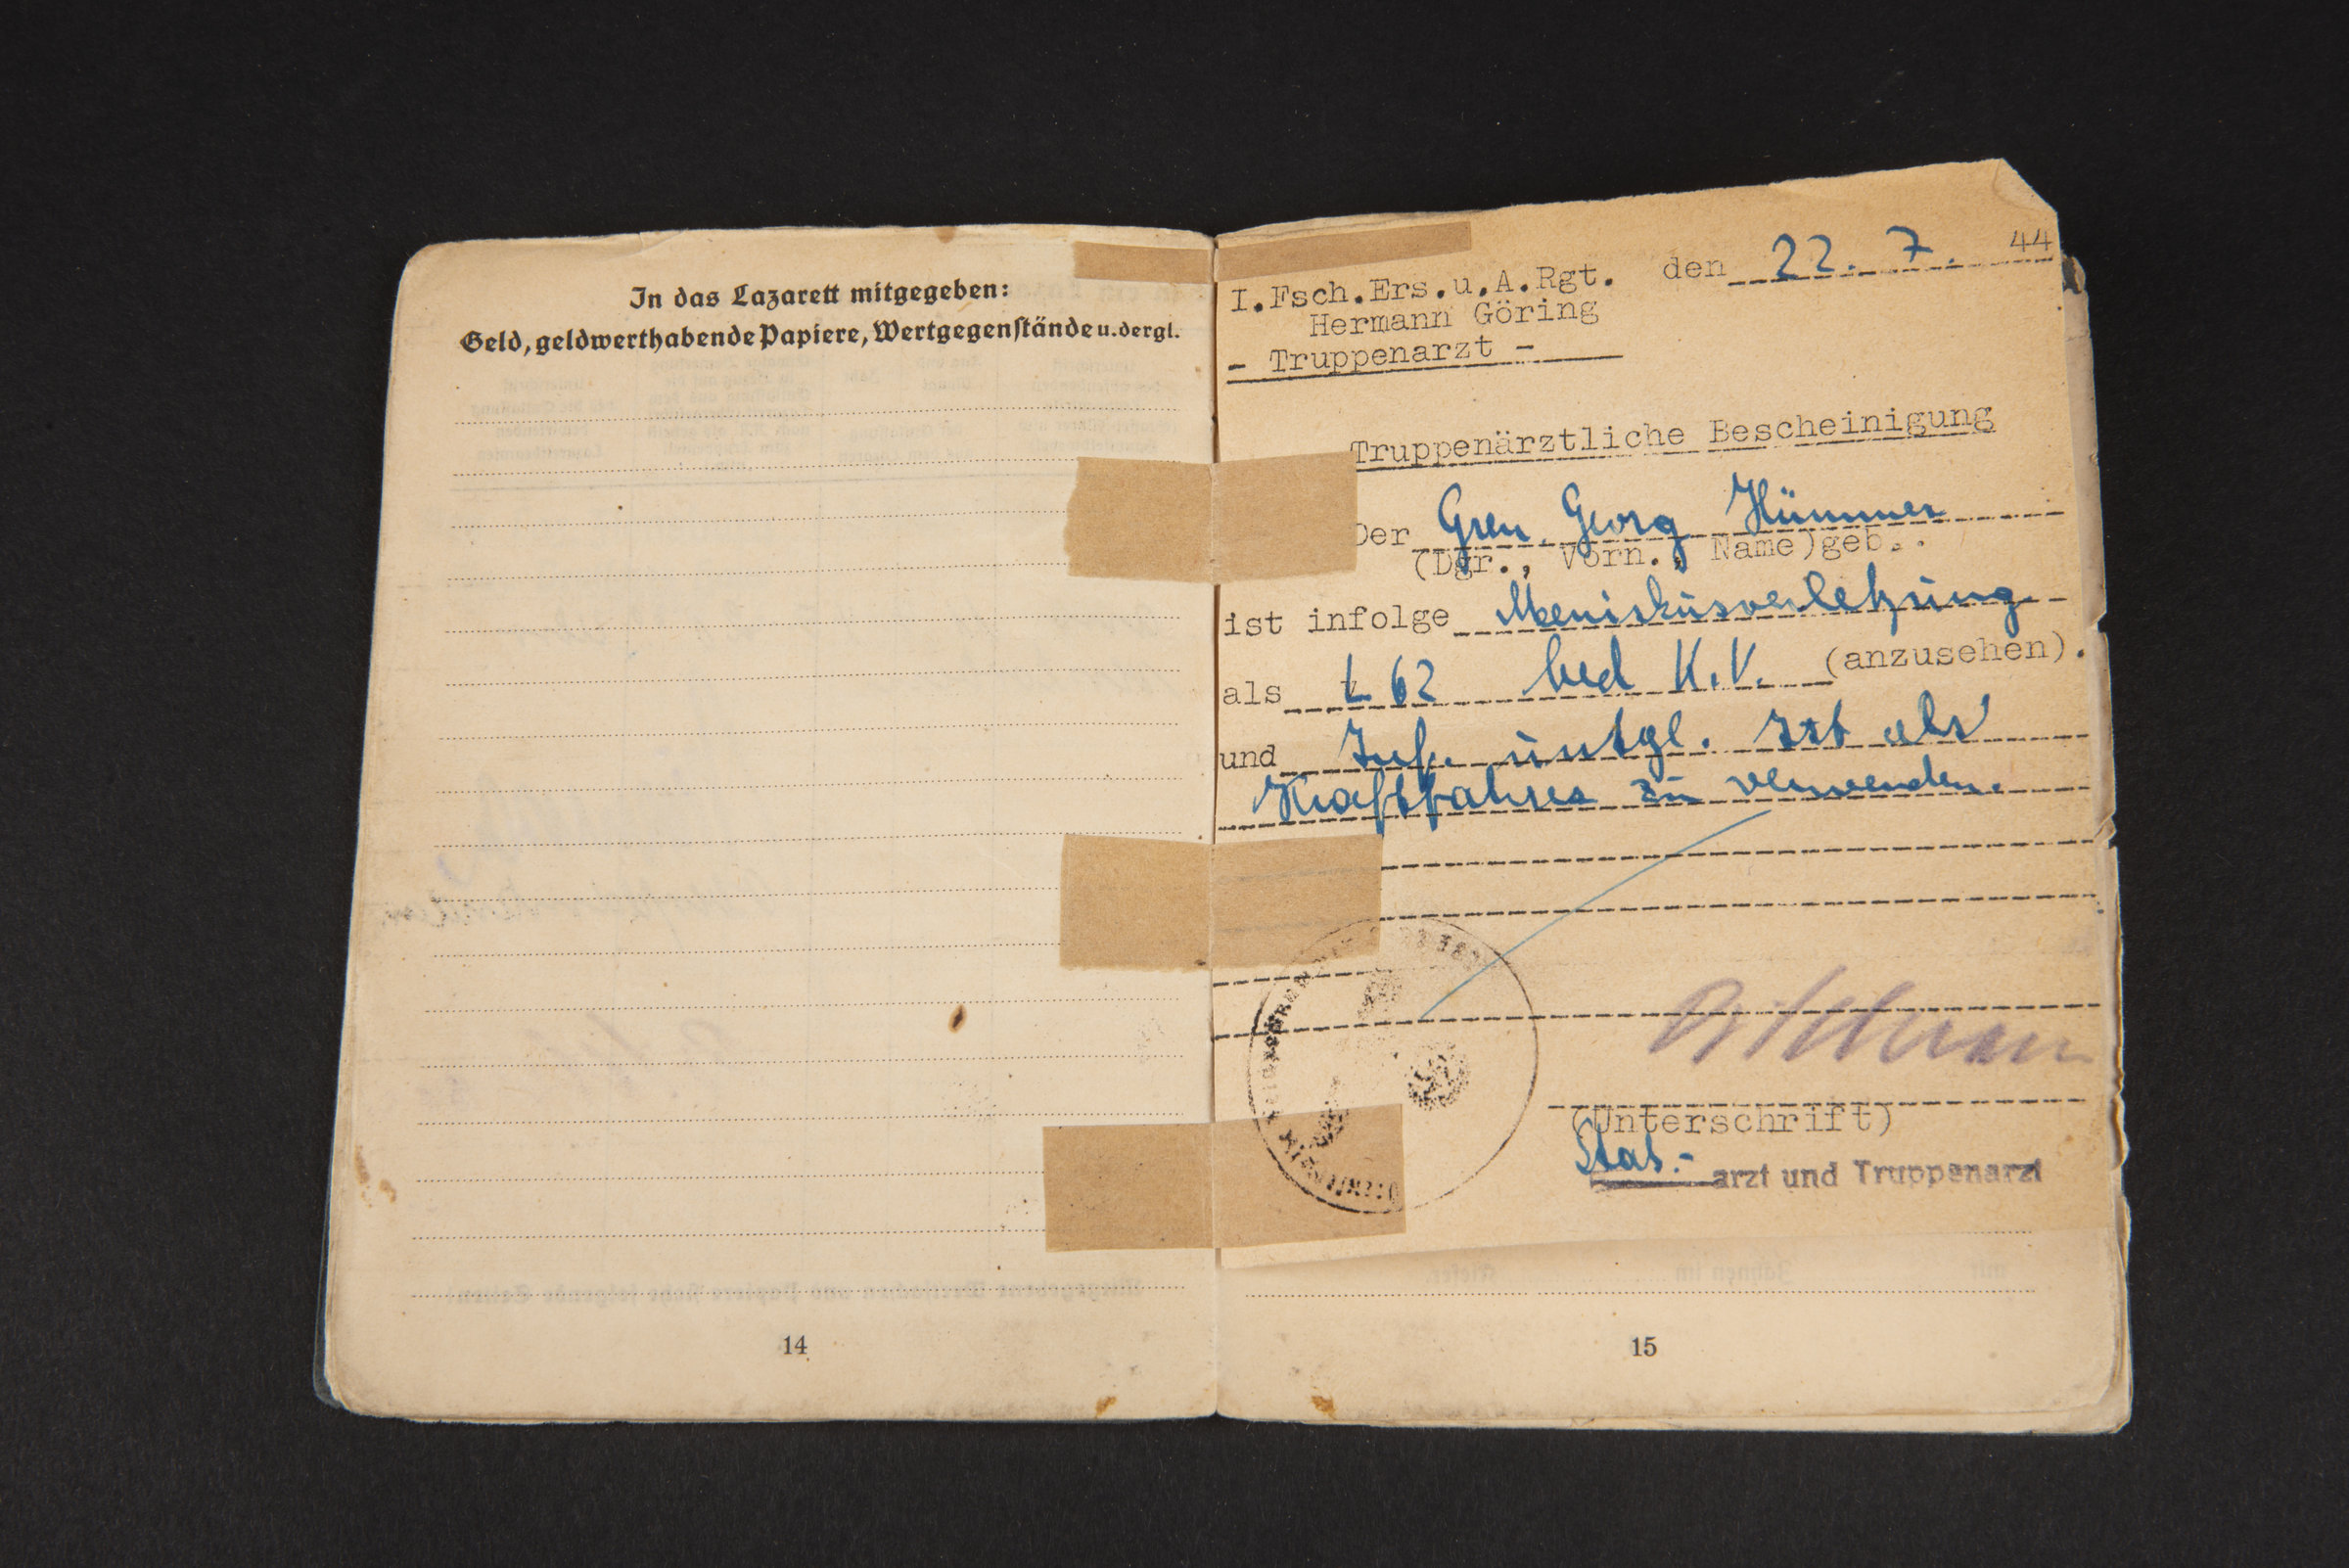 In das Lazarett mitgegeben:
Geld, geldwerthabende Papiere, Wertgegenstände u. dergl.
14
I.Fsch.Ers.u.A.Rgt. den 22. 7. 44
Hermann Göring
- Truppenarzt -
Truppenärztliche Bescheinigung
Der Gren. Georg Hümmer
(Dgr., Vorn., Name)geb..
ist infolge Meniskusverletzung
als L 62 bed K.V. (anzusehen).
und Inf. untgl. Ist als
Kraftfahrer zu verwenden.
(Unterschrift)
Stabs.- arzt und Truppenarzt
15